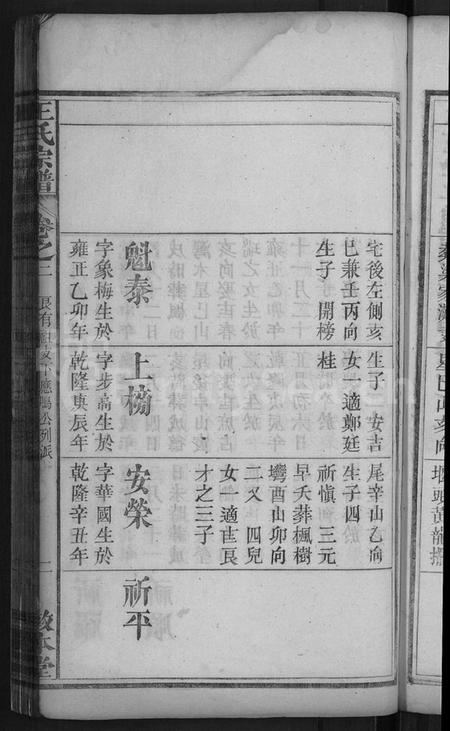 宅後左側亥
巳兼壬丙向
生子 開榜
魁泰
字象梅生於
雍正乙卯年
生子 安吉
女一適鄭廷
桂
上榜
字步高生於
乾隆庚辰年
尾辛山乙向
生子四
祈慎 三元
早夭葬楓樹
灣酉山卯向
二又 四兒
女一適
才之三子
安榮
字華國生於
乾隆辛丑年
祈平
王氏宗譜
卷之二
公列派
一
敬本堂
亥向
堰頭黃龍